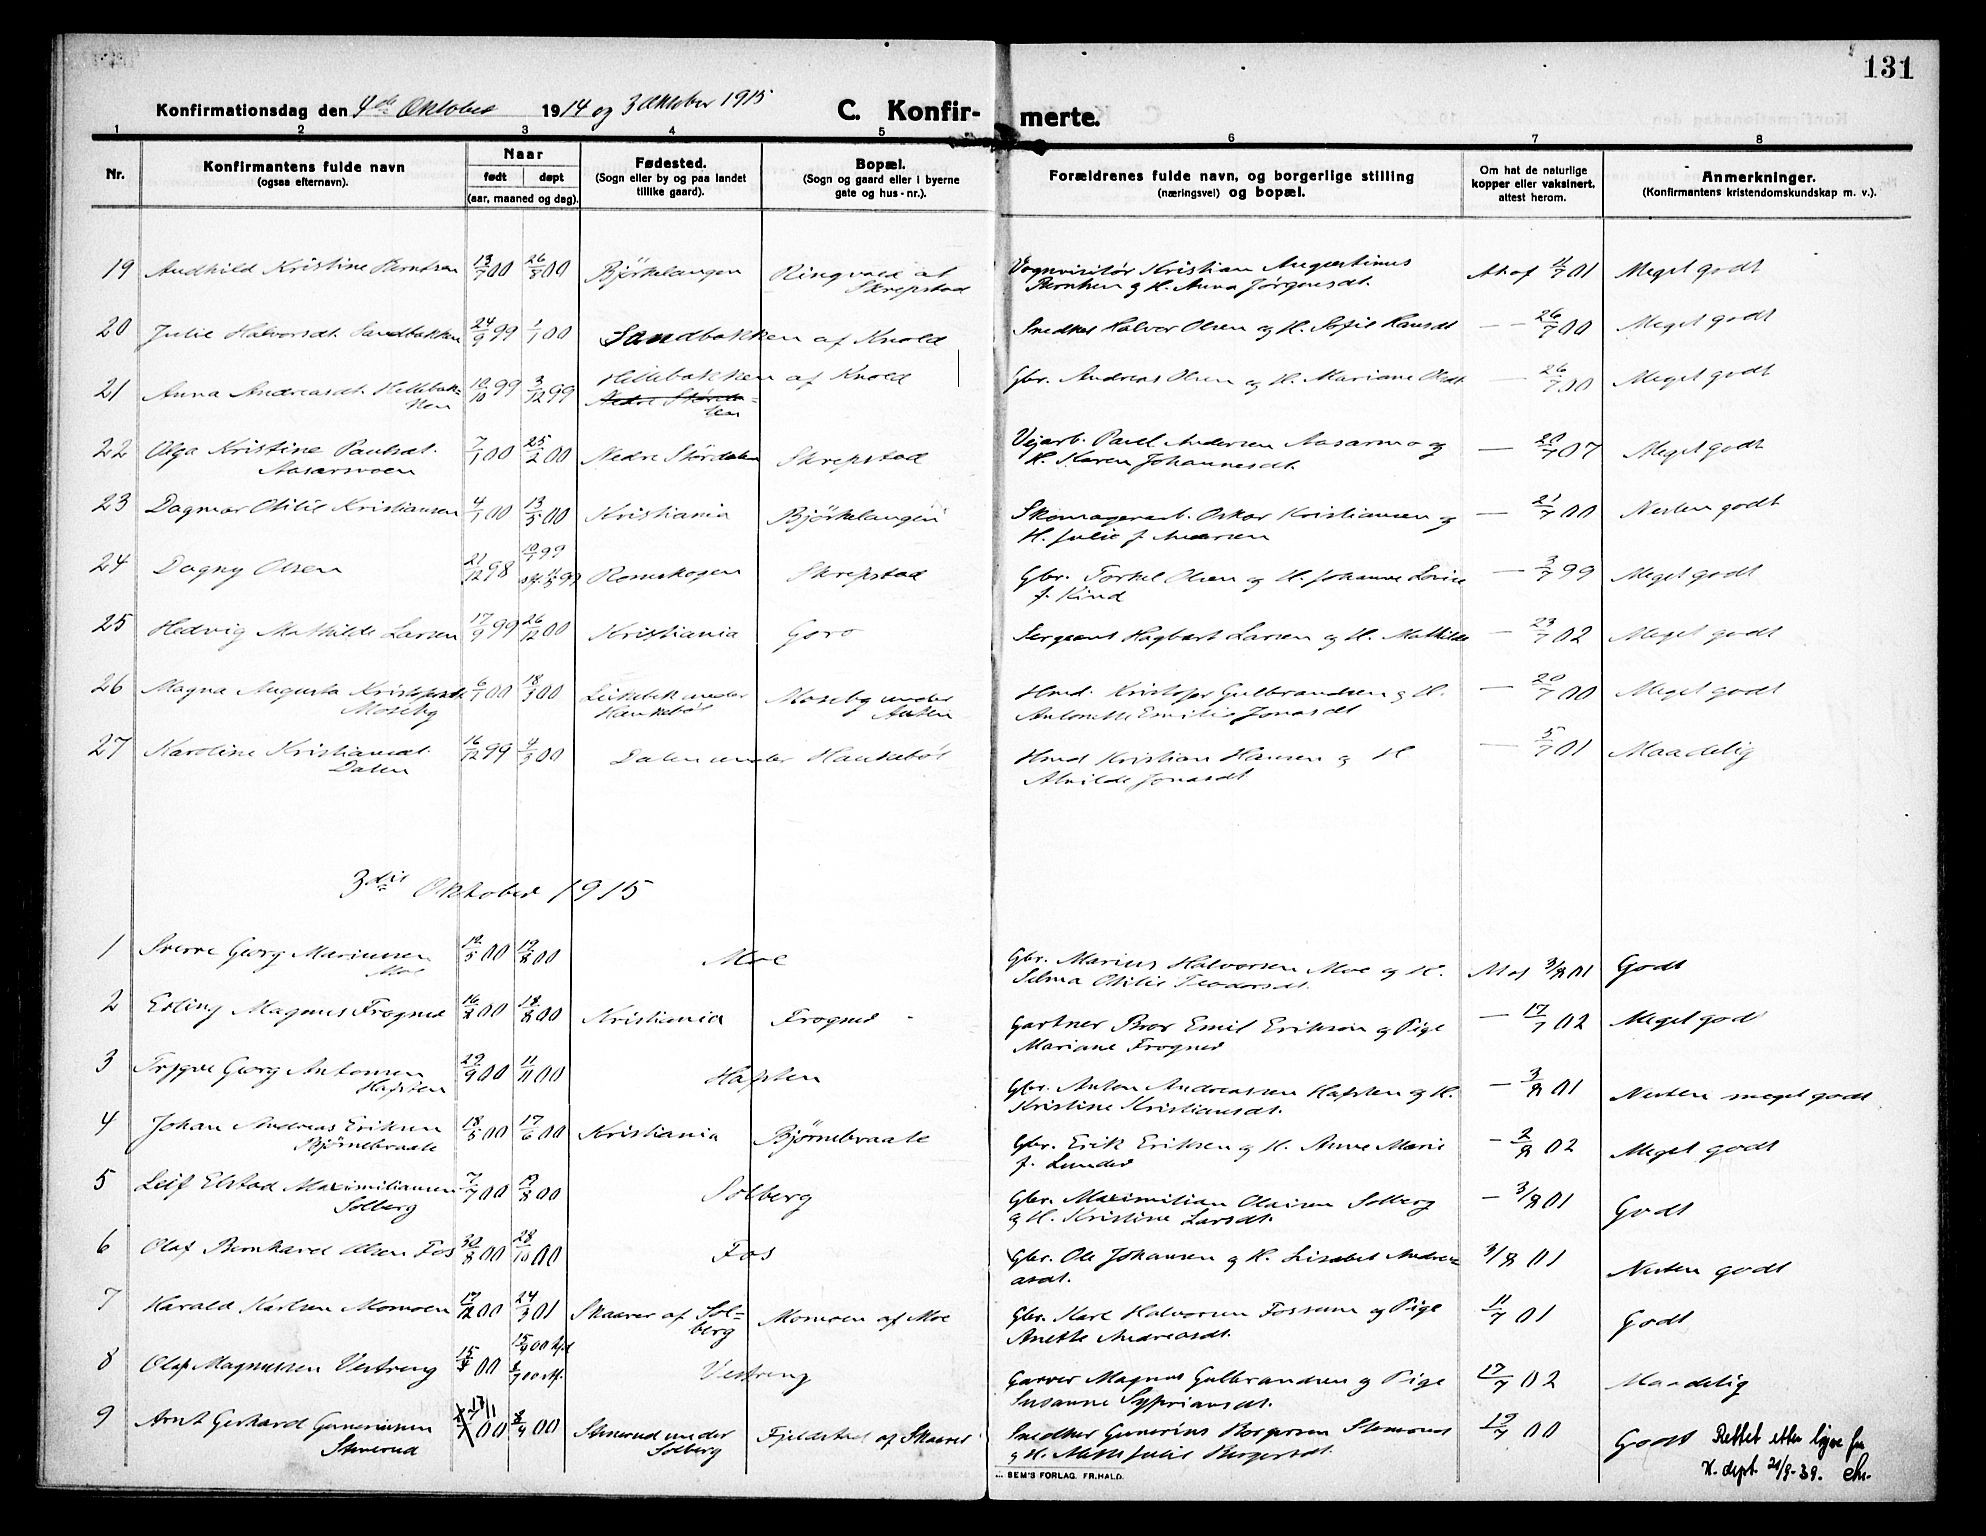 131
Konfirmationsdag den 4de Oktober 1914 og 3 Oktober 1915 C. Konfirmerte.
1 2 3 4 5 6 7 8
Nr.
Konfirmantens fulde navn
(ogsaa efternavn).
Naar
født døpt
(aar, maaned og dag).
Fødested.
(Sogn eller by og paa landet
tillike gaard).
Bopæl.
(Sogn og gaard eller i byerne
gate og hus-nr.).
Forældrenes fulde navn, og borgerlige stilling
(næringsvei) og bopæl.
Om hat de naturlige
kopper eller vaksinert,
attest herom.
Anmerkninger.
(Konfirmantens kristendomskundskap m. v.).
19 Audhild Kristine Berntsen 13/7 00 26/8 00 Bjørkelangen Ringvold af Vognvisitør Kristian Augustinus At af 11/7 01 Meget godt
Skrepstad Berntsen og H. Anna Jørgensdt.
20 Julie Halvorsdt. Sandbakken 24/9 99 1/1 00 Sandbakken af Knold Snedker Halvor Olsen og H. Sofie Hansdt — 26/7 00 Meget godt
21 Anna Andreasdt. Hellebak- 10/10 99 3/12 99 Hellebakken af Knold Gbr. Andreas Olsen og H. Mariane Olsdt — 26/7 00 Meget godt
ken
22 Olga Kristine Paulsdt. 7/1 00 25/2 00 Nedre Størdalen Skrepstad Vejarb. Paul Andersen Aasarmo og — 20/7 07 Meget godt
Aasarmoen H. Karen Johannesdt.
23 Dagmar Otilie Kristiansen 4/1 00 13/5 00 Kristiania Bjørkelangen Skomagerarb. Oskar Kristiansen og — 21/7 00 Nesten godt
H. Julie f. Andersen
24 Dagny Olsen 21/12 98 Romskogen Skrepstad Gbr. Torkel Olsen og H. Johanne Lovise — 3/7 99 Meget godt
f. Kind
25 Hedvig Mathilde Larsen 17/9 99 26/12 00 Kristiania Goro Sergeant Hagbart Larsen og H. Mathilde — 23/7 02 Meget godt
26 Magna Augusta Kristofersdt 6/1 00 18/3 00 under Moseby under Hmd. Kristofer Gulbrandsen og H. — 20/7 00 Meget godt
Moseby Haukebøl Aulen Antonette Emilie Jonasdt
27 Karoline Kristiansdt. 16/12 99 4/3 00 Dalen under Haukebøl Hmd Kristian Hansen og H — 5/7 01 Maadelig
Dalen Alvilde Jonasdt
3die Oktober 1915
1 Sverre Georg Mariussen 10/5 00 19/8 00 Moe Gbr. Marius Halvorsen Moe og H. At af 3/8 01 Godt
Moe Selma Otilie Teodorsdt.
2 Erling Magnus Frogner 16/2 00 18/8 00 Kristiania Frogner Gartner Bror Emil Erikson og Pige — 17/7 02 Meget godt
Mariane Frogner
3 Trygve Georg Antonsen 29/9 00 11/11 00 Hafsten Gbr. Anton Andreassen Hafsten og H. — 3/8 01 Nesten meget godt
Hafsten Kristine Kristiansdt.
4 Johan Andreas Eriksen 18/5 00 17/6 00 Kristiania Bjørnebraate Gbr. Erik Eriksen og H. Anne Marie — 2/8 02 Meget godt
Bjørnebraate f. Lunder
5 Leif Elstad Maximiliansen 7/7 00 19/8 00 Solberg Gbr. Maximilian Olaisen Solberg — 3/8 01 Godt
Solberg og H. Kristine Larsdt.
6 Olaf Bernhard Olsen Fos 30/8 00 28/10 00 Fos Gbr. Ole Johansen og H. Lisabet Andre- 3/8 01 Nesten godt
asdt.
7 Harald Karlsen Momoen 17/12 00 24/3 01 Skaarer af Sol- Momoen af Moe Gbr. Karl Halvorsen Fossum og Pige 11/7 01 Godt
berg Anette Andreasdt.
8 Olaf Magnussen Vestreng 15/8 00 15/9 00 Vestreng Garver Magnus Gulbrandsen og Pige 17/7 02 Maadelig
Susanne Sypriansdt.
9 Arnt Gerhard Guneriussen 00 8/4 00 Stenerud under Fjeldstad af Skaarer Snedker Gunerius Borgersen Stenerud 19/7 00 Godt Rettet etter
Stenerud Solberg og H. Mette Julie Borgersdt. K. dept. 21/9-39.
SEM'S FORLAG. FR.HALD.